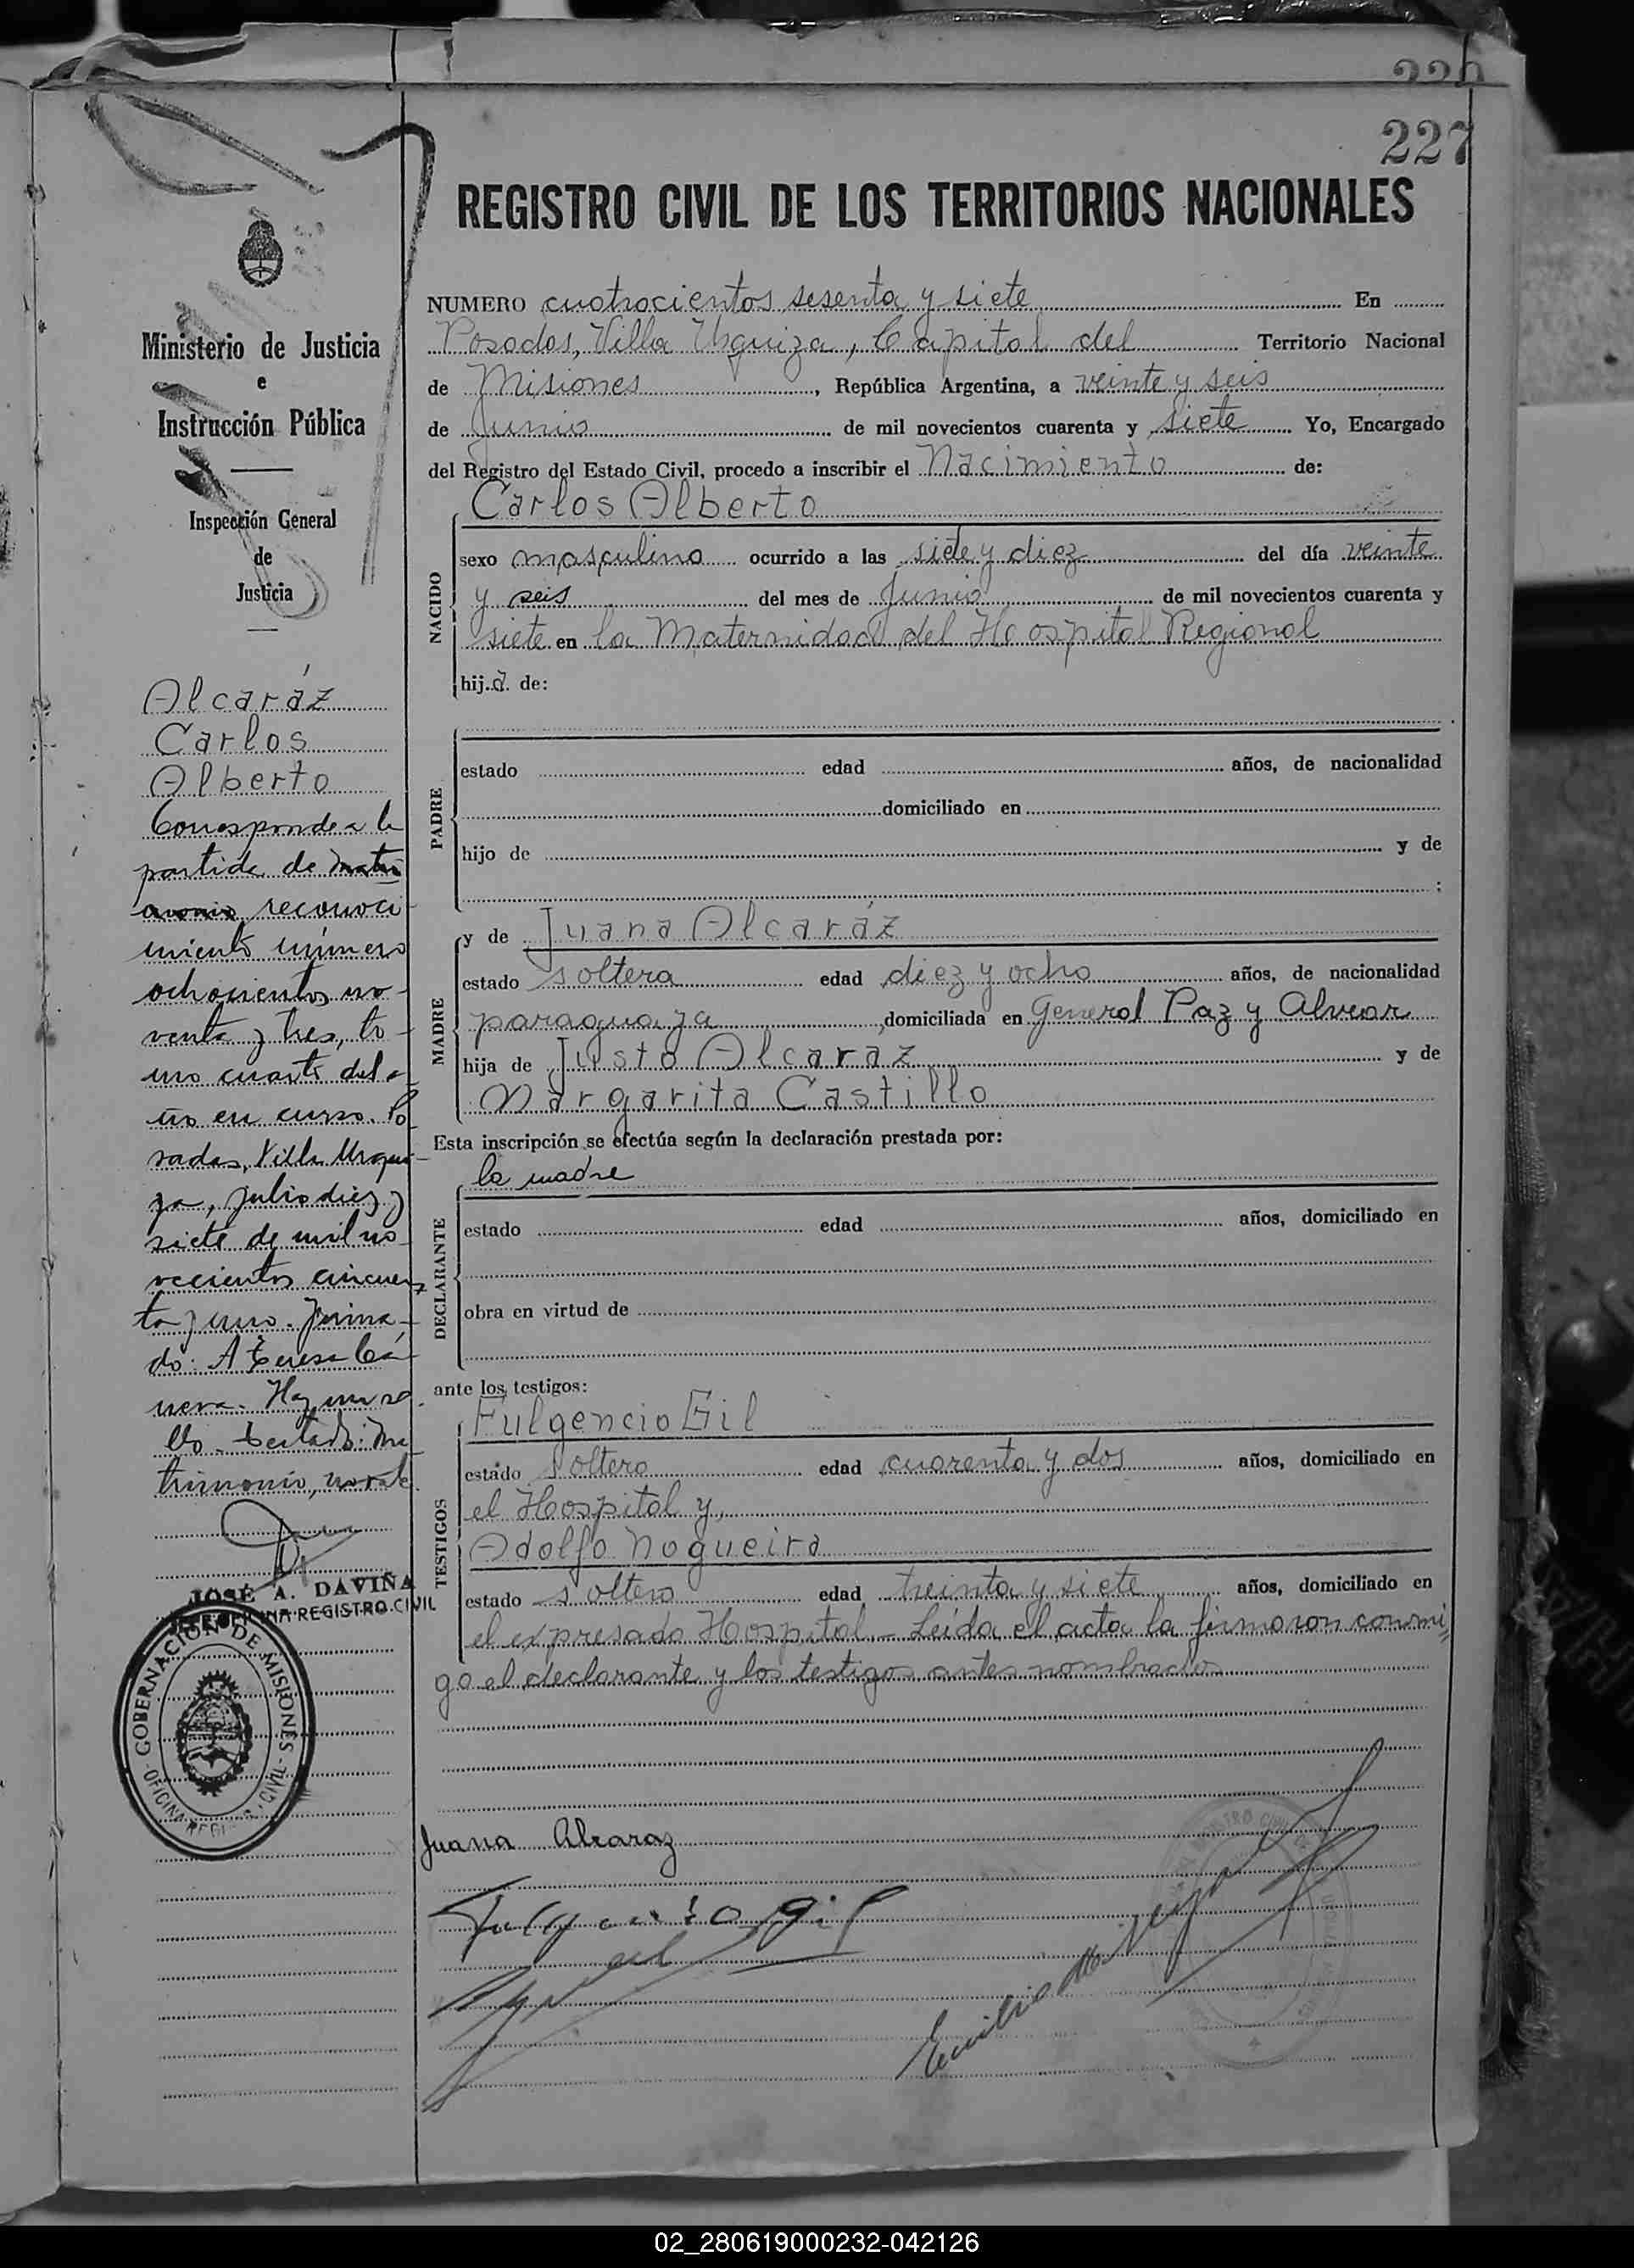 220
227
REGISTRO CIVIL DE LOS TERRITORIOS NACIONALES
Ministerio de Justicia
e
Instrucción Pública
Inspección General
de
Justicia
Alcaráz
Carlos
Alberto
Corresponde a la
partida de matri
monio, reconoci
miento número
ochocientos no-
venta y tres, to-
mo cuarto del a-
ño en curso. Po
sadas, Villa Urqui-
za, julio diez y
siete de mil no
vecientos cincuen
ta y uno. Firma-
do: A Teresa Cá
neva. Hay un se
llo. Testado: Ma
trimonio, no vale.
JOSÉ A. DAVIÑA
OFICINA REGISTRO CIVIL
GOBERNACION DE MISIONES
OFICINA REGISTRO CIVIL
NUMERO cuatrocientos sesenta y siete En
Posadas, Villa Urquiza, Capital del Territorio Nacional
de Misiones, República Argentina, a veinte y seis
de Junio de mil novecientos cuarenta y siete Yo, Encargado
del Registro del Estado Civil, procedo a inscribir el Nacimiento de:
NACIDO
Carlos Alberto
sexo masculino ocurrido a las siete y diez del día veinte
y seis del mes de Junio de mil novecientos cuarenta y
siete en la Maternidad del Hospital Regional
hij.a. de:
PADRE
estado edad años, de nacionalidad
domiciliado en
hijo de y de
;
MADRE
y de Juana Alcaráz
estado soltera edad diez y ocho años, de nacionalidad
paraguaya, domiciliada en General Paz y Alvear
hija de Justo Alcaraz y de
Margarita Castillo
Esta inscripción se efectúa según la declaración prestada por:
DECLARANTE
la madre
estado edad años, domiciliado en
obra en virtud de
ante los testigos:
TESTIGOS
Fulgencio Gil
estado soltero edad cuarenta y dos años, domiciliado en
el Hospital y,
Adolfo Nogueira
estado soltero edad treinta y siete años, domiciliado en
el expresado Hospital - Leída el acta la firmaron conmi
go el declarante y los testigos antes nombrados
Juana Alcaraz
Fulgencio Gil
Emilio
02_280619000232-042126